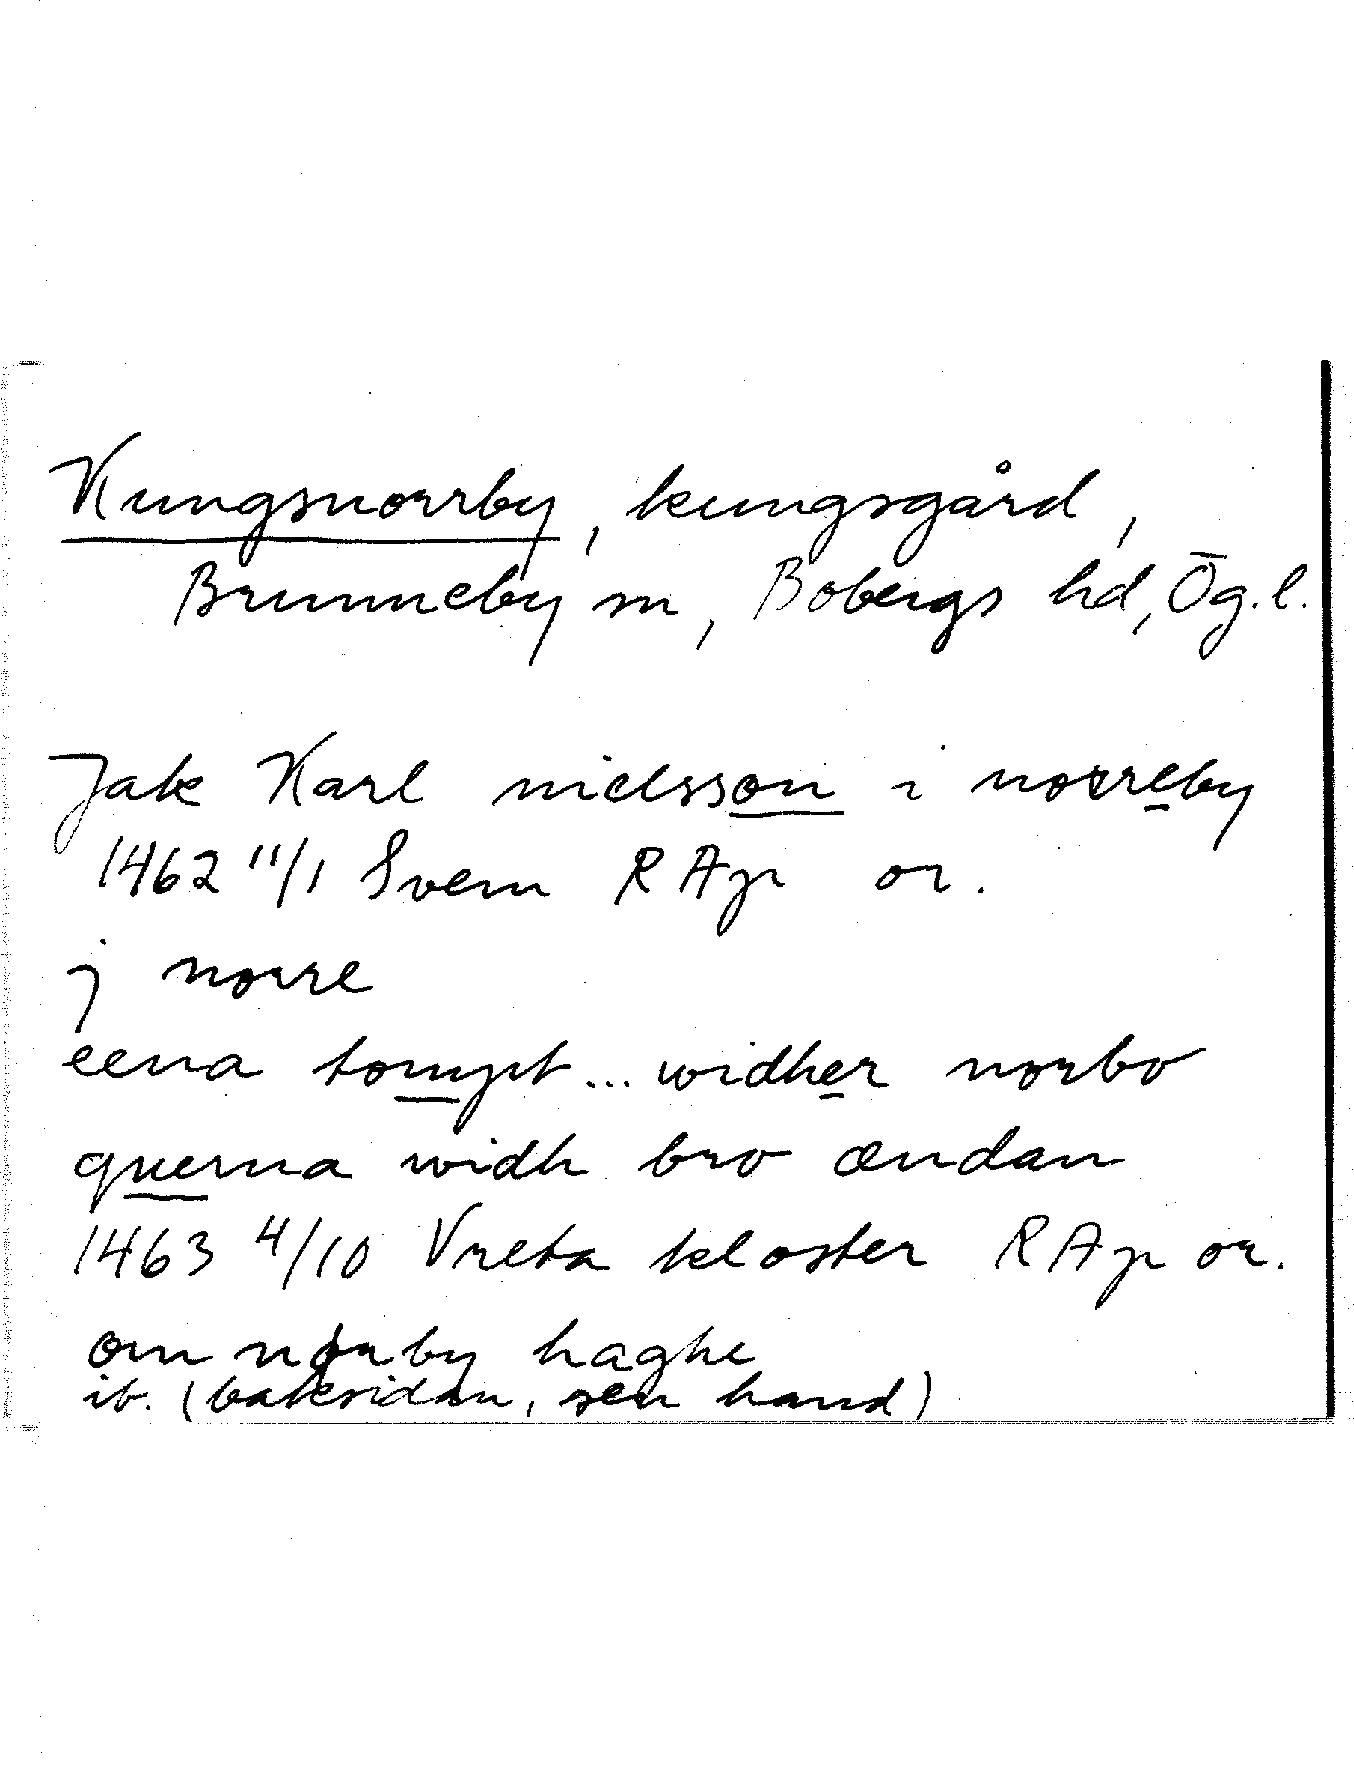 Kungsnorrby, kungsgård,
Brunneby sn, Bobergs hd, Ög.l.
Jak Karl nielsson i norreby
1462 11/1 Svem RAp or.
j norre
eena tompt... widher norbo
querna widh bro ændan
1463 4/10 Vreta kloster RAp or.
om nørby haghe
ib. (baksidan, sen hand)